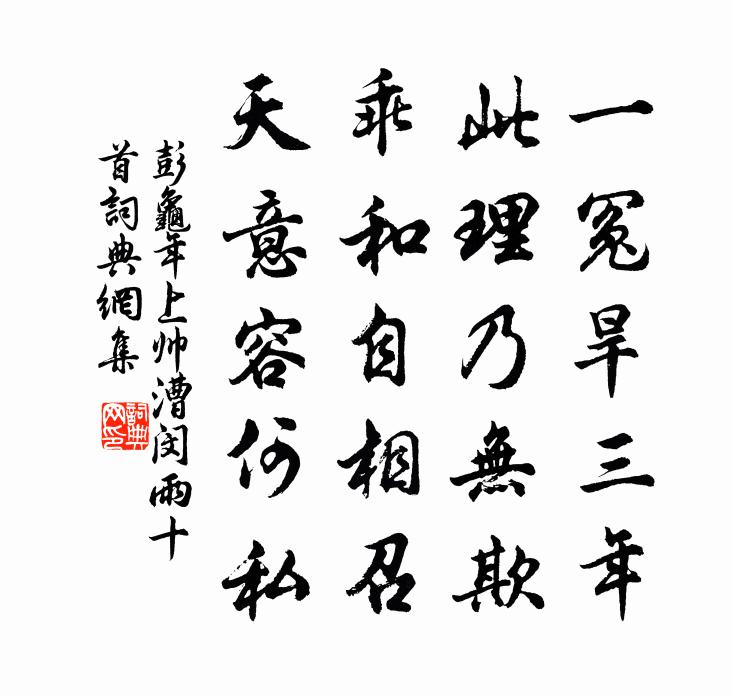 一冤旱三年
此理乃無欺
乖和自相召
天意容何私
彭龜年上帅漕闵雨十
首詞典網集
詞典
网印